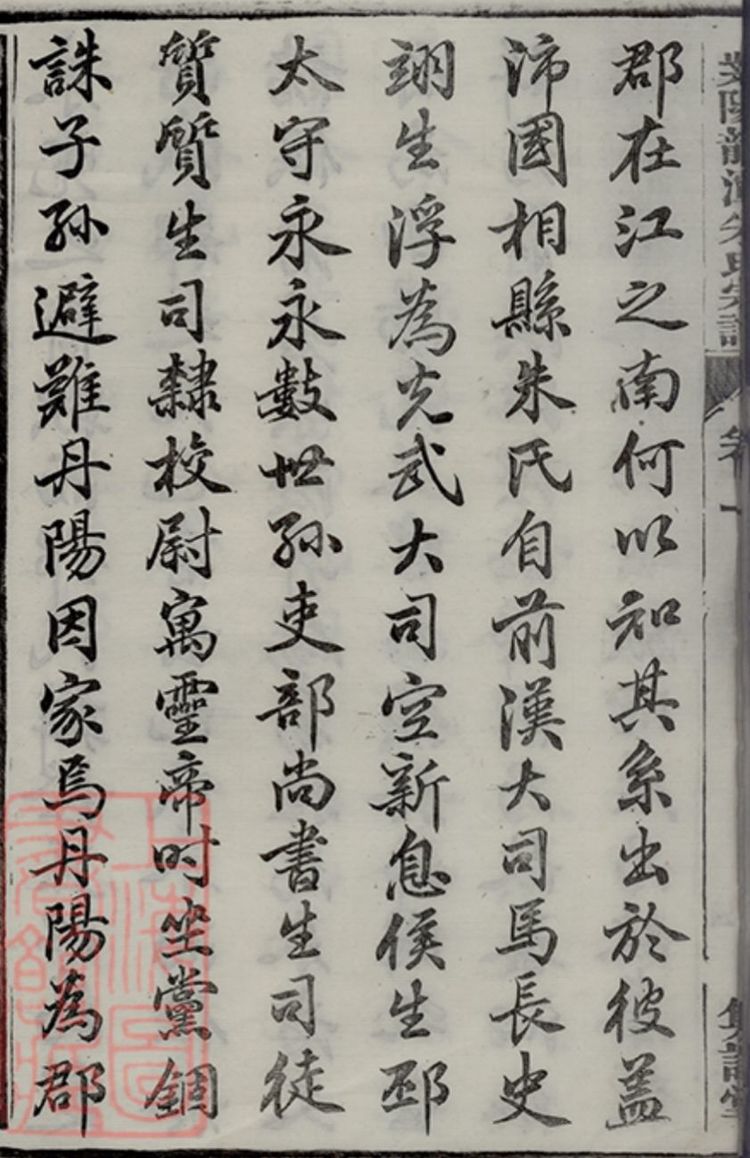 郡在江之南何以知其系出於彼盖
沛國相縣朱氏自前漢大司馬長史
翊生浮為光武大司空新息侯生邳
太守永永數世孫吏部尚書生司徒
質質生司隸校尉寓靈帝时坐黨錮
誅子孫避難丹陽因家焉丹陽為郡